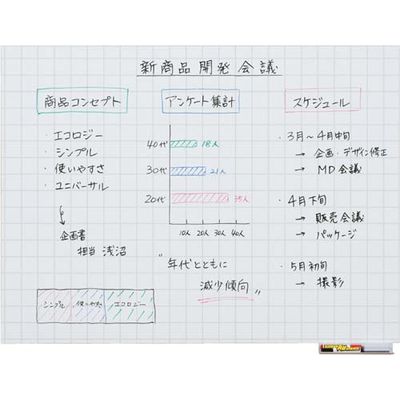 新商品開発会議
商品コンセプト
・エコロジー
・シンプル
・使いやすさ
・ユニバーサル
企画書
担当 浅沼
シンプル 使いやすさ エコロジー
アンケート集計
40代 18人
30代 21人
20代 35人
10人 20人 30人 40人
〃年代とともに
減少傾向〃
スケジュール
・3月〜4月中旬
→ 企画・デザイン修正
→ MD会議
・4月下旬
→ 販売会議
→ パッケージ
・5月初旬
→ 撮影